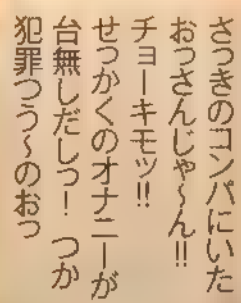 さっきのコンパにいた
おっさんじゃ〜ん!!
チョーキモッ!!
せっかくのオナニーが
台無しだしっ！　つか
犯罪つう〜のおっ